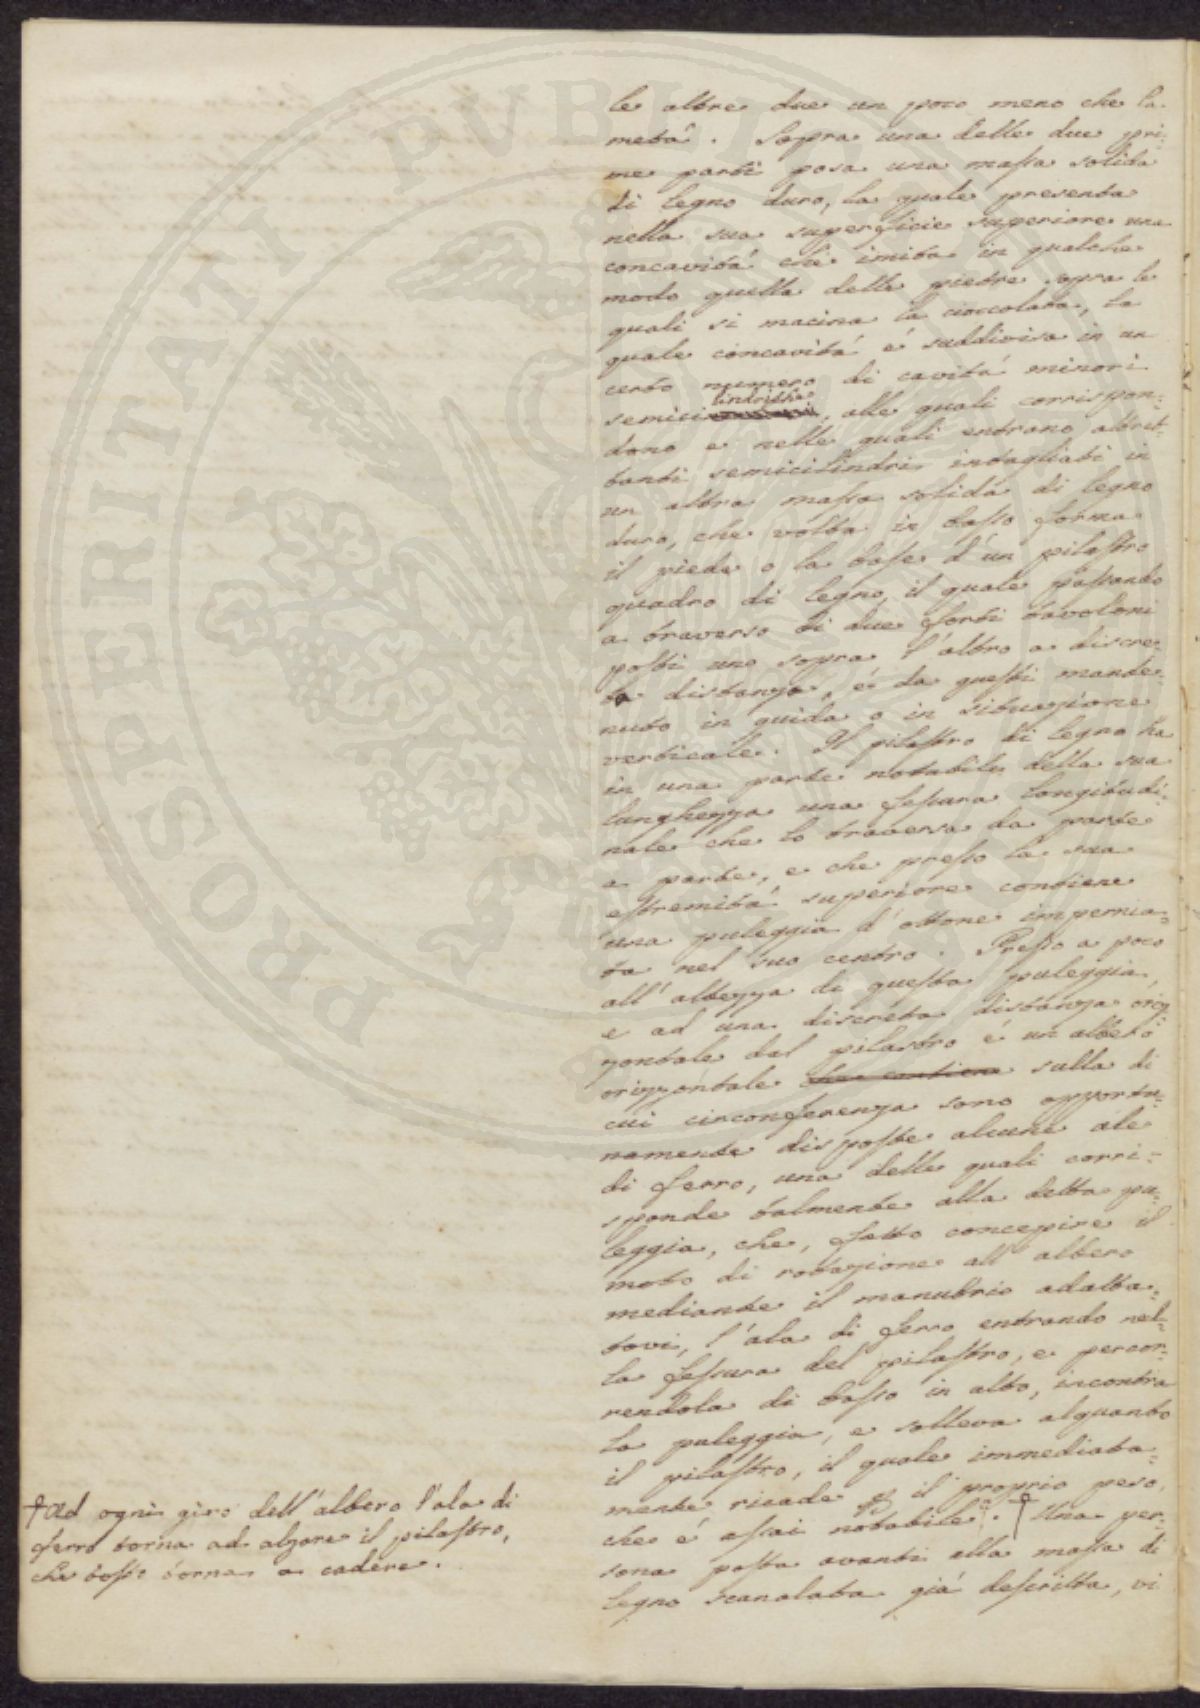 le altre due un poco meno che la
metá. Sopra una delle due pri-
me parti posa una massa solida
di legno duro, la quale presenta
nella sua superficie superiore una
concavitá che imita in qualche
modo quella delle pietre sopra le
quali si macina la cioccolata, la
quale concavitá é suddivisa in un
certo numero di cavitá minori
semicilindriche, alle quali corrispon=
dono e nelle quali entrano altret-
tanti semicilindri intagliati in
un altra massa solida di legno
duro, che volta in basso forma
il piede o la base d'un pilastro
quadro di legno, il quale passando
a traverso di due forti tavoloni
posti uno sopra l'altro a discre-
ta distanza, é da questi mante-
nuto in guida o in situazione
verticale. Il pilastro di legno ha
in una parte notabile della sua
lunghezza una fessura longitudi-
nale che lo traversa da parte
a parte, e che presso la sua
estremitá superiore contiene
una puleggia d'ottone impernia=
ta nel suo centro. Presso a poco
all'altezza di questa puleggia,
e ad una discreta distanza oriz
zontale dal pilastro é un albero
orizzontale che contiene sulla di
cui circonferenza sono opportu=
namente disposte alcune ale
di ferro, una delle quali corri=
sponde talmente alla detta pu=
leggia, che, fatto concepire il
moto di rotazione all'albero
mediante il manubrio adatta=
tovi, l'ala di ferro entrando nel=
la fessura del pilastro, e percor=
rendola di basso in alto, incontra
la puleggia, e solleva alquanto
il pilastro, il quale immediata=
mente ricade p il proprio peso,
che é assai notabile. † Una per=
sona posta avanti alla massa di
legno scanalata giá descritta, vi
†Ad ogni giro dell'albero l'ala di
ferro torna ad alzare il pilastro,
che tosto torna a cadere.
PROSPERITATI PVBLICAE